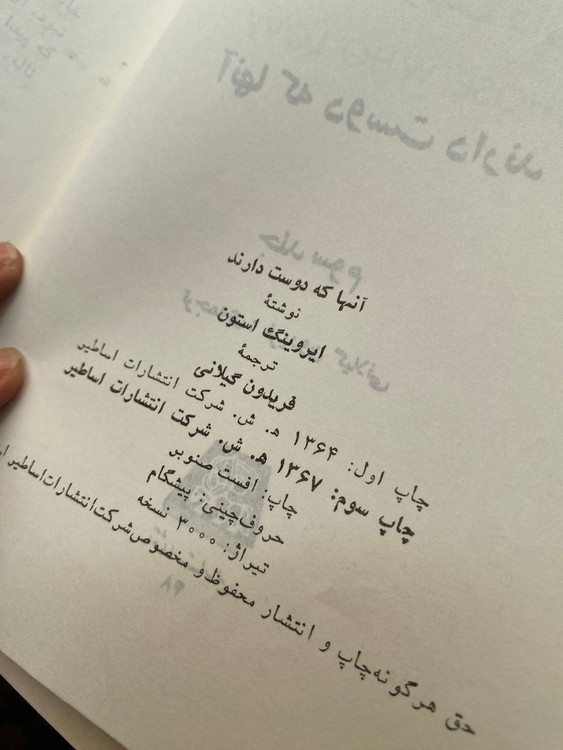 آنها که دوست دارند
نوشتهٔ
ایروینگ استون
ترجمهٔ
فریدون گیلانی
چاپ اول: ۱۳۶۴ ه‍. ش. شرکت انتشارات اساطیر
چاپ سوم: ۱۳۶۷ ه‍. ش. شرکت انتشارات اساطیر
چاپ: افست صنوبر
حروف‌چینی: پیشگام
تیراژ: ۳۰۰۰ نسخه
حق هرگونه چاپ و انتشار محفوظ و مخصوص شرکت انتشارات اساطیر